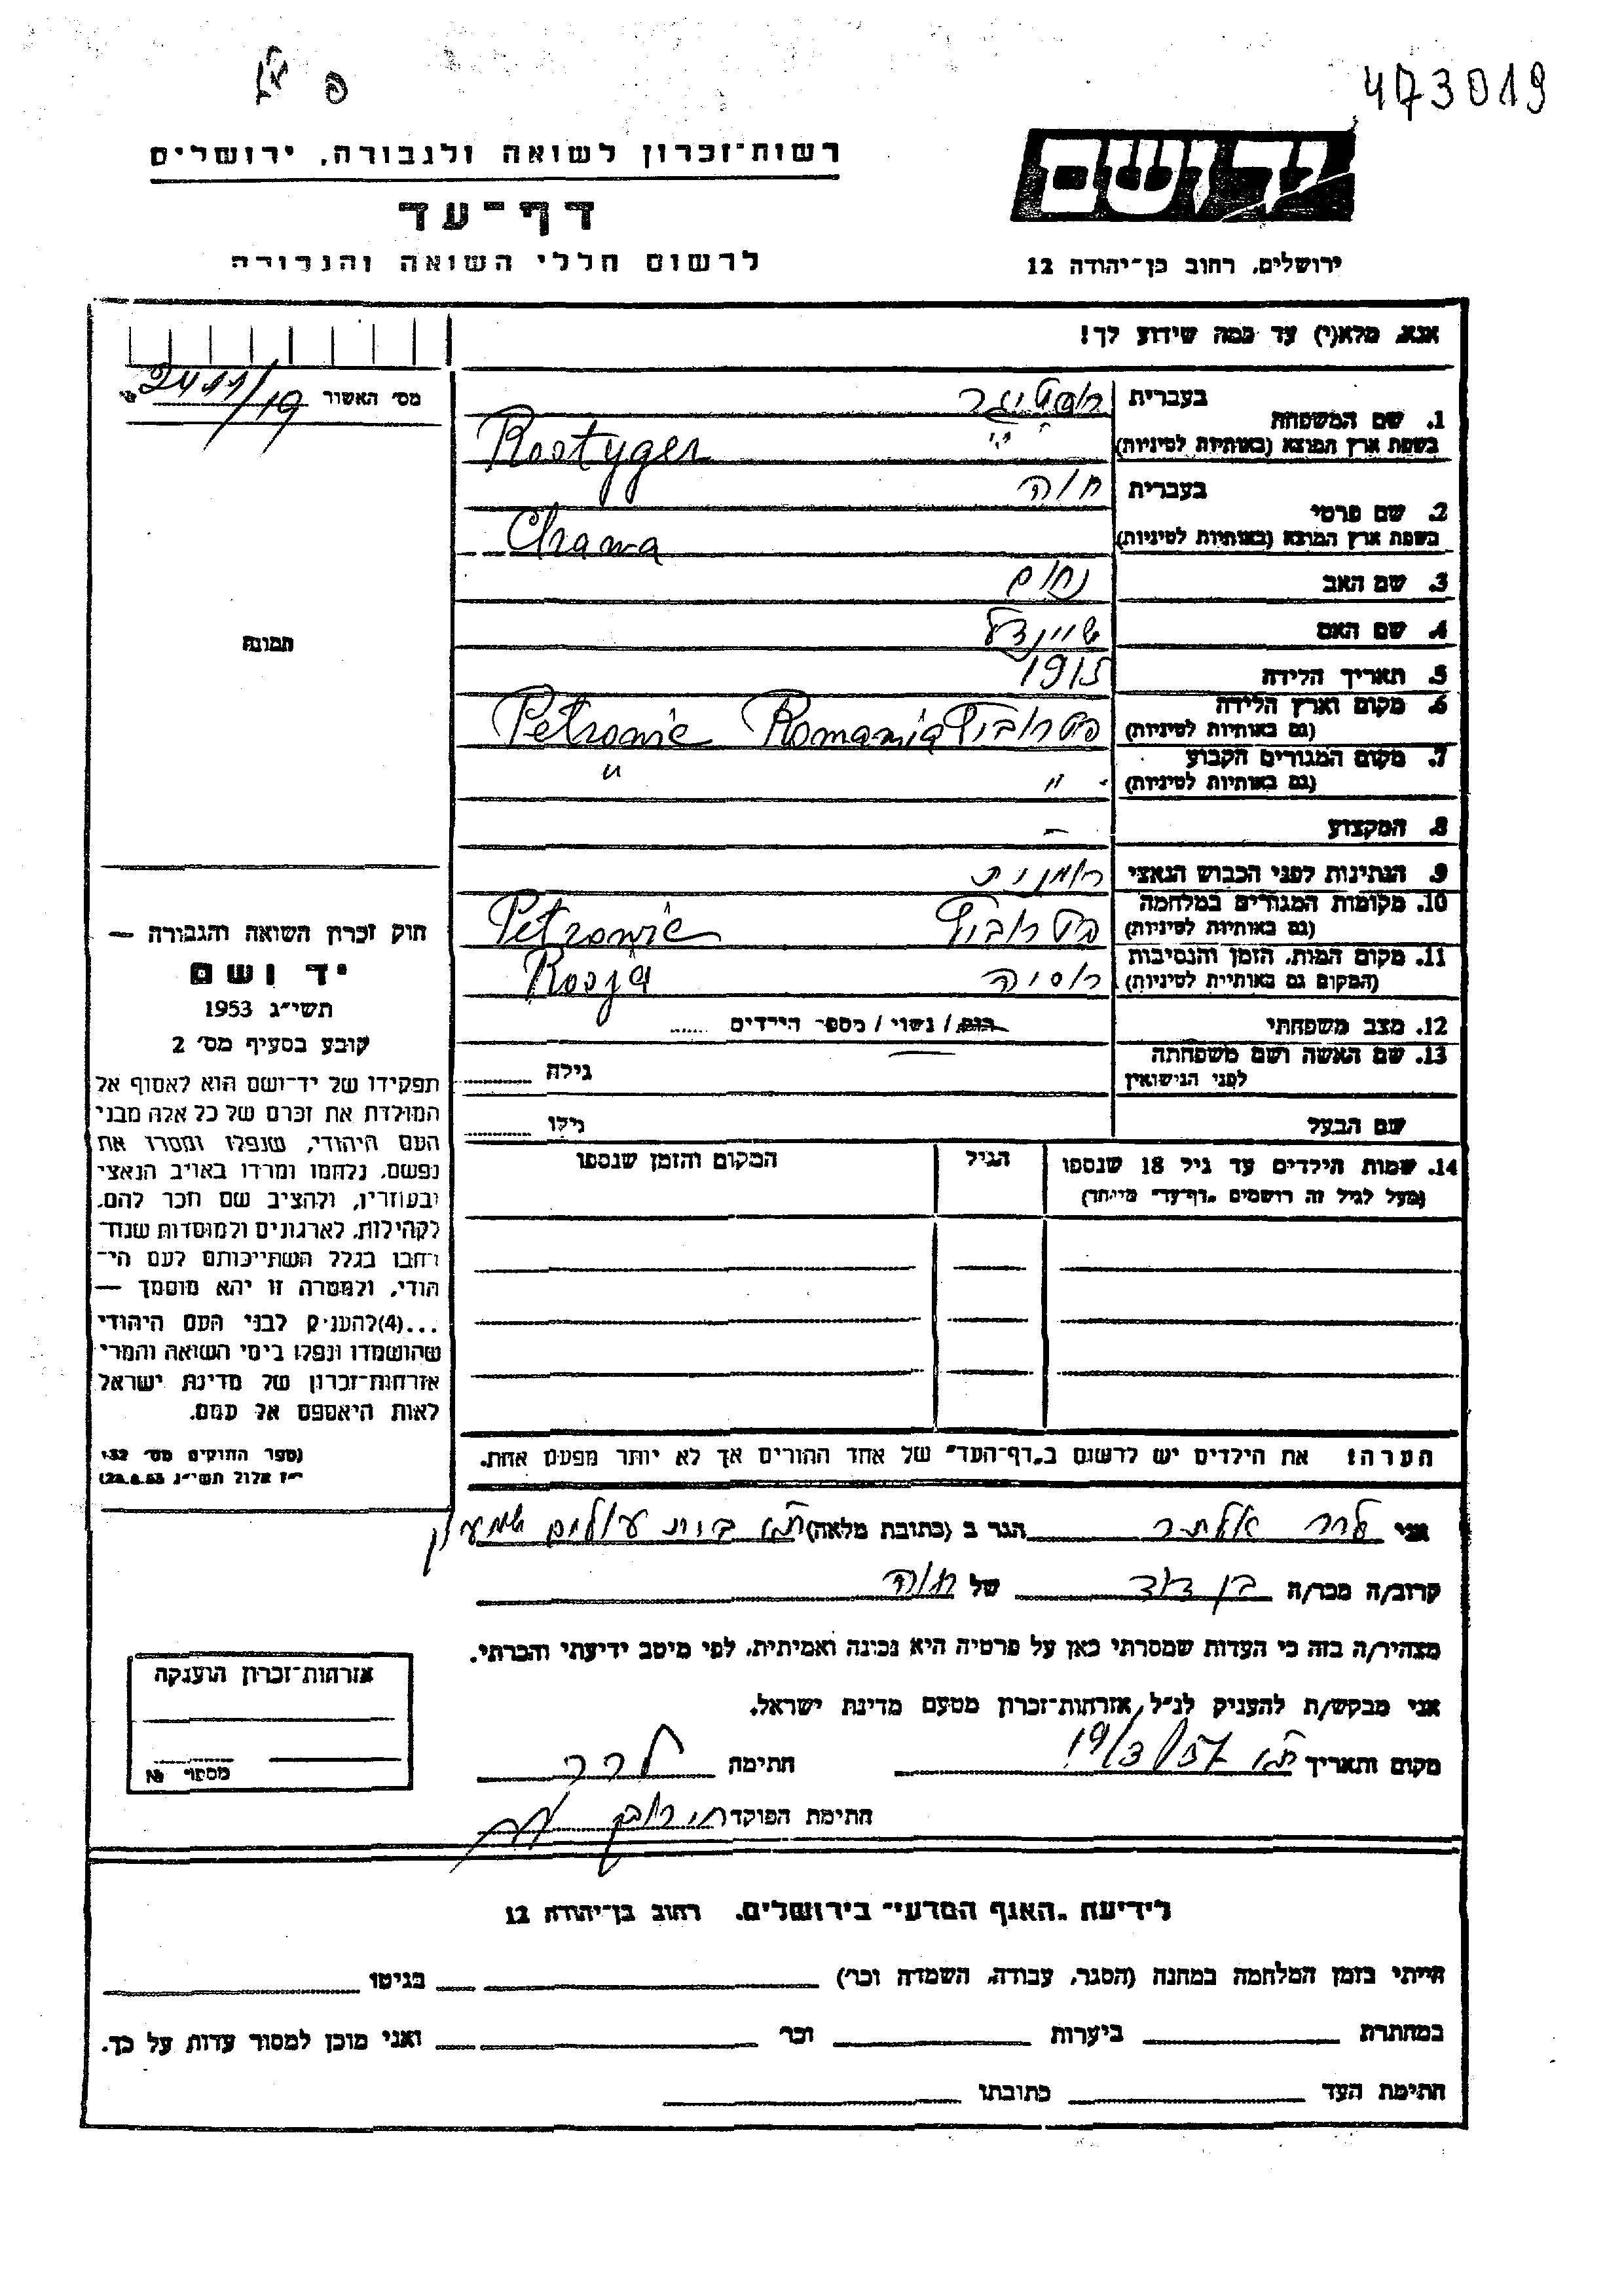 473019
רשות־זכרון לשואה ולגבורה, ירושלים
יד ושם
דף־עד
לרשום חללי השואה והגבורה
ירושלים, רחוב בן־יהודה 12
אנא, מלא(י) עד כמה שידוע לך!
מס׳ האשור 2411/19
1. שם המשפחה בעברית רוסטיגר
בשפת ארץ המוצא (באותיות לטיניות) Rostyger
2. שם פרטי בעברית חוה
בשפת ארץ המוצא (באותיות לטיניות) Chawa
3. שם האב נחום
4. שם האם שיינדל
5. תאריך הלידה 1915
6. מקום וארץ הלידה (גם באותיות לטיניות) Petrowic Romania
7. מקום המגורים הקבוע (גם באותיות לטיניות) " "
8. המקצוע –
9. הנתינות לפני הכבוש הנאצי רומנית
10. מקומות המגורים במלחמה (גם באותיות לטיניות) Petrowic
11. מקום המות, הזמן והנסיבות (המקום גם באותיות לטיניות) רוסיה Rosja
12. מצב משפחתי רווק / נשוי / מספר הילדים
13. שם האשה ושם משפחתה לפני הנישואין גילה
שם הבעל גילו
14. שמות הילדים עד גיל 18 שנספו
(מעל לגיל זה רושמים „דף־עד״ מיוחד)
הגיל
המקום והזמן שנספו
הערה: את הילדים יש לרשום ב„דף־העד״ של אחד ההורים אך לא יותר מפעם אחת.
תמונה
חוק זכרון השואה והגבורה —
יד ושם
תשי״ג 1953
קובע בסעיף מס׳ 2
תפקידו של יד־ושם הוא לאסוף אל
המולדת את זכרם של כל אלה מבני
העם היהודי, שנפלו ומסרו את
נפשם, נלחמו ומרדו באויב הנאצי
ובעוזריו, ולהציב שם וזכר להם,
לקהילות, לארגונים ולמוסדות שנח־
רבו בגלל השתייכותם לעם הי־
הודי, ולמטרה זו יהא מוסמך —
...(4) להעניק לבני העם היהודי
שהושמדו ונפלו בימי השואה והמרי
אזרחות־זכרון של מדינת ישראל
לאות היאספם אל עמם.
(ספר החוקים מס׳ 132
י״ז אלול תשי״ג 28.8.53)
אני הגר ב (כתובת מלאה)
קרוב/ה מכר/ה בן דוד של חוה
מצהיר/ה בזה כי העדות שמסרתי כאן על פרטיה היא נכונה ואמיתית, לפי מיטב ידיעתי והכרתי.
אני מבקש/ת להעניק לנ״ל אזרחות־זכרון מטעם מדינת ישראל.
מקום ותאריך 19/3/57 חתימה
חתימת הפוקד
אזרחות־זכרון הוענקה
מספר №
לידיעת „האגף המדעי״ בירושלים, רחוב בן־יהודה 12
הייתי בזמן המלחמה במחנה (הסגר, עבודה, השמדה וכו׳) בגיטו
במחתרת ביערות וכו׳ ואני מוכן למסור עדות על כך.
חתימת העד כתובתו